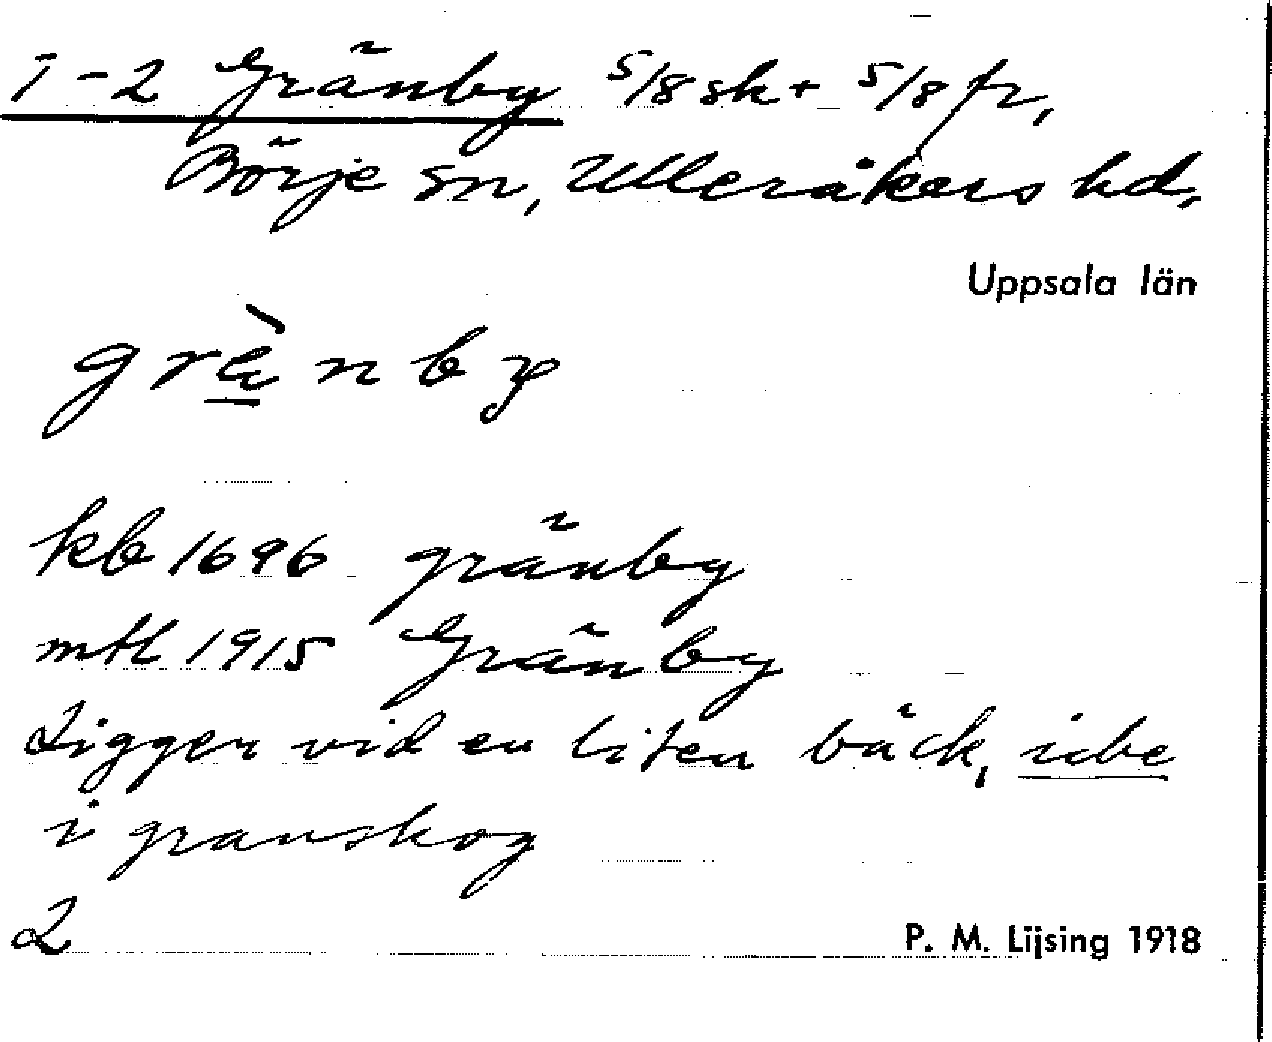 1-2 Gränby 5/8 sk + 5/8 fr,
Börje sn, Ulleråkers hd,
Uppsala län
grὰnby
kb 1696 gränby
mtl 1915 Gränby
Ligger vid en liten bäck, icke
i granskog
2
P. M. Lijsing 1918